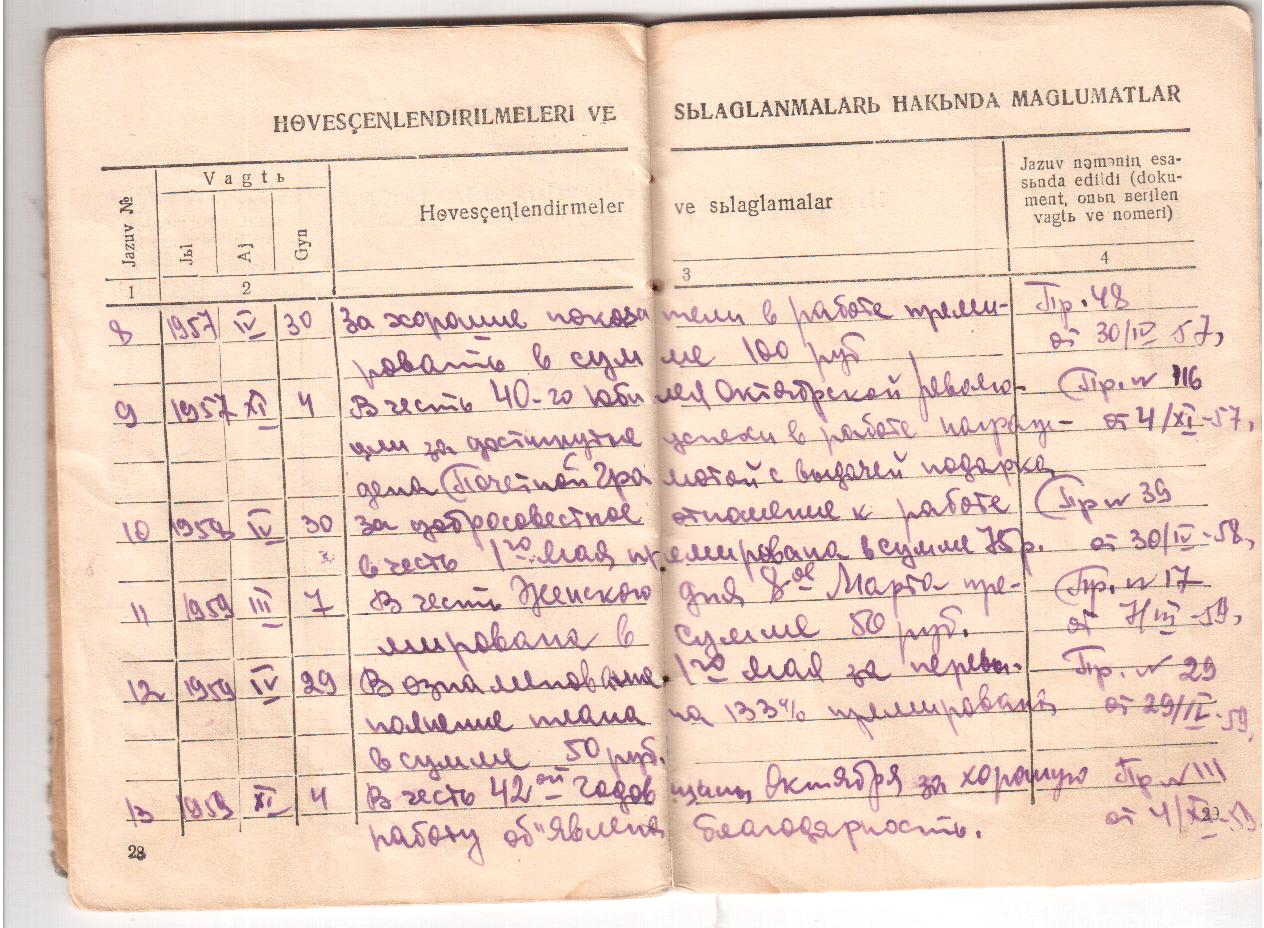 HɵVESÇENLENDIRILMELERI VE SЬLAGLANMALARЬ HAKЬNDA MAGLUMATLAR
Jazuv №
Vagtь
Jьl
Aj
Gyn
Hɵvesçenlendirmeler ve sьlaglamalar
Jazuv nəməniꞑ esa-
sьnda edildi (doku-
ment, onьꞑ ʙerilen
vagtь ve nomeri)
1 2 3 4
8 1957 IV 30 За хорошие показатели в работе преми- Пр. 48
ровать в сумме 100 руб от 30/IV 57,
9 1957 XI 4 В честь 40-го юбилея Октябрской револю- Пр. № 116
ции за достигнутые успехи в работе награж- от 4/XI-57,
дена Почетной Грамотой с выдачей подарка
10 1958 IV 30 За добросовестное отношение к работе Пр № 39
в честь 1го мая премирована в сумме 75р. от 30/IV-58,
11 1959 III 7 В честь Женского дня 8ое Марта пре- Пр. № 17
мирована в сумме 50 руб. от 7/III-59,
12 1959 IV 29 В ознаменование 1го мая за перевы- Пр. № 29
полнение плана на 133% премирована от 29/IV-59,
в сумме 50 руб.
13 1959 XI 4 В честь 42ой годовщины Октября за хорошую Пр № 111
работу об"явлена благодарность. от 4/XI-59
28 29